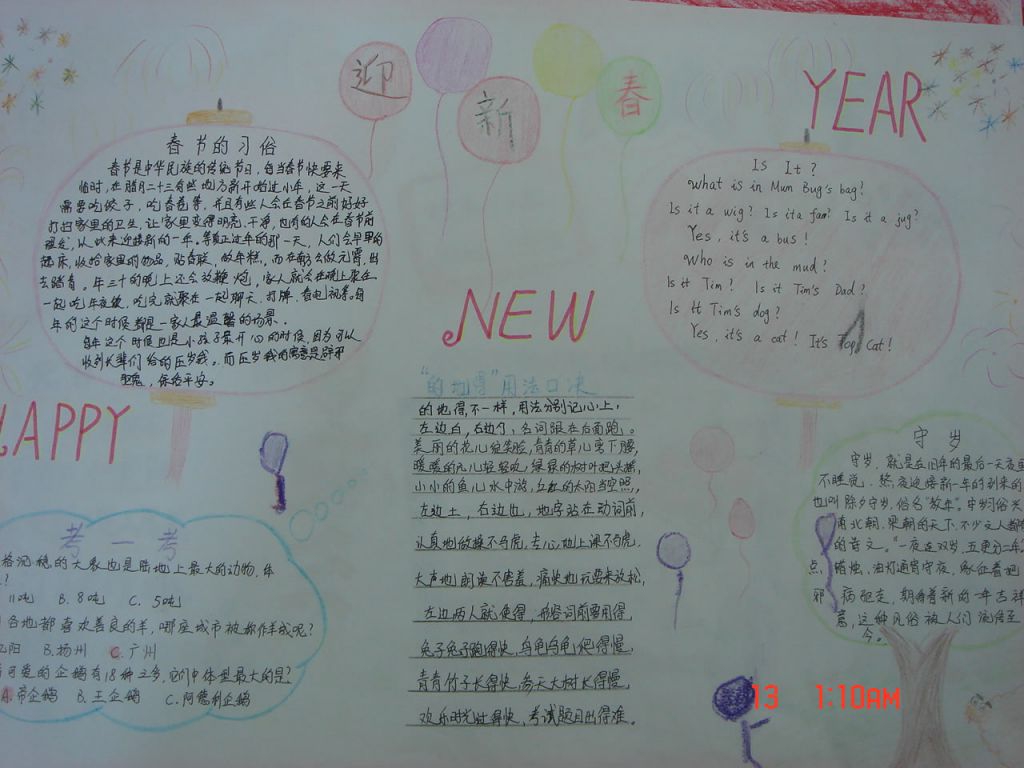 迎
新
春
YEAR
NEW
HAPPY
春节的习俗
春节是中华民族的传统节日，每当春节快要来
临时，在腊月二十三有些地方就开始过小年，这一天
需要吃饺子，吃香卷等，并且有些人会在春节之前好好
打扫家里的卫生，让家里变得明亮、干净，也有的人会在春节前
理发，以此来迎接新的一年。等真正过年的那一天，人们会早早的
起床，收拾家里的物品，贴春联，做年糕，而在
去踏春。年三十的晚上还会放鞭炮，家人就会在晚上聚在
一起吃年夜饭，吃完就聚在一起聊天、打牌、看电视等。每
年的这个时候都是一家人最温馨的场景。
每年这个时候也是小孩子最开心的时候，因为可以
收到长辈们给的压岁钱。而压岁钱的寓意是辟邪
驱鬼，保佑平安。
Is It?
What is in Mum Bug's bag?
Is it a wig? Is it a fan? Is it a jug?
Yes, it's a bus!
Who is in the mud?
Is it Tim? Is it Tim's Dad?
Is it Tim's dog?
Yes, it's a cat! It's Top Cat!
“的地得”用法口决
的地得，不一样，用法分别记心上，
左边白，右边勺，名词跟在后面跑。
美丽的花儿绽笑脸，青青的草儿弯下腰，
暖暖的风儿轻轻吹，绿绿的树叶把头摇，
小小的鱼儿水中游，红红的太阳当空照，
左边土，右边也，地字站在动词前，
认真地做操不马虎，专心地上课不
大声地朗读不害羞，痛快地玩耍来放松，
左边两人就使得，形容词前要用得，
兔子兔子跑得快，乌龟乌龟爬得慢，
青青竹子长得快，参天大树长得慢，
欢乐时光过得快，考试题目出得难。
考一考
格沉稳的大象也是陆地上最大的动物，年
?
11吨 B.8吨 C.5吨
各地都喜欢善良的羊，哪座城市被称作羊城呢?
阳 B.扬州 C.广州
可爱的企鹅有18种之多，它们中体型最大的是?
A.帝企鹅 B.王企鹅 C.阿德利企鹅
守岁
守岁，就是在旧年的最后一天夜里
不睡觉，熬夜迎接新一年的到来的
也叫除夕守岁，俗名“熬年”。守岁习俗兴
南北朝，梁朝的天下，不少文人都有
的诗文。“一夜连双岁，五更分二年”
点 蜡烛，油灯通宵守夜，象征着把
邪 病驱走，期待着新的一年吉祥
意，这种风俗被人们流传至
今。
13 1:10AM